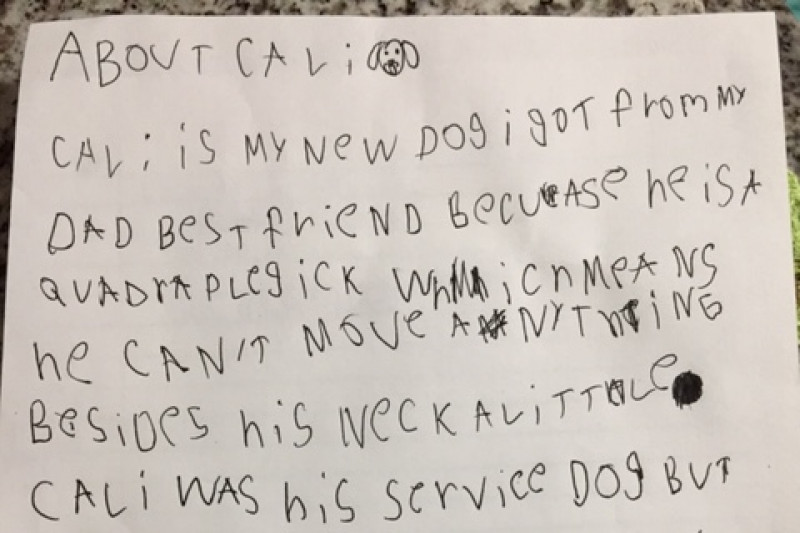 ABOUT CALi
CALi iS MY NeW DOg i gOT from MY
DAD BeST frieND BecUEASe he iS A
QUADrAPLegiCK WhicH MeANS
he CAN'T MOVe ANYTHiNG
BeSiDeS hiS NeCK A LiTTULe.
CALi WAS hiS Service DOg BUT